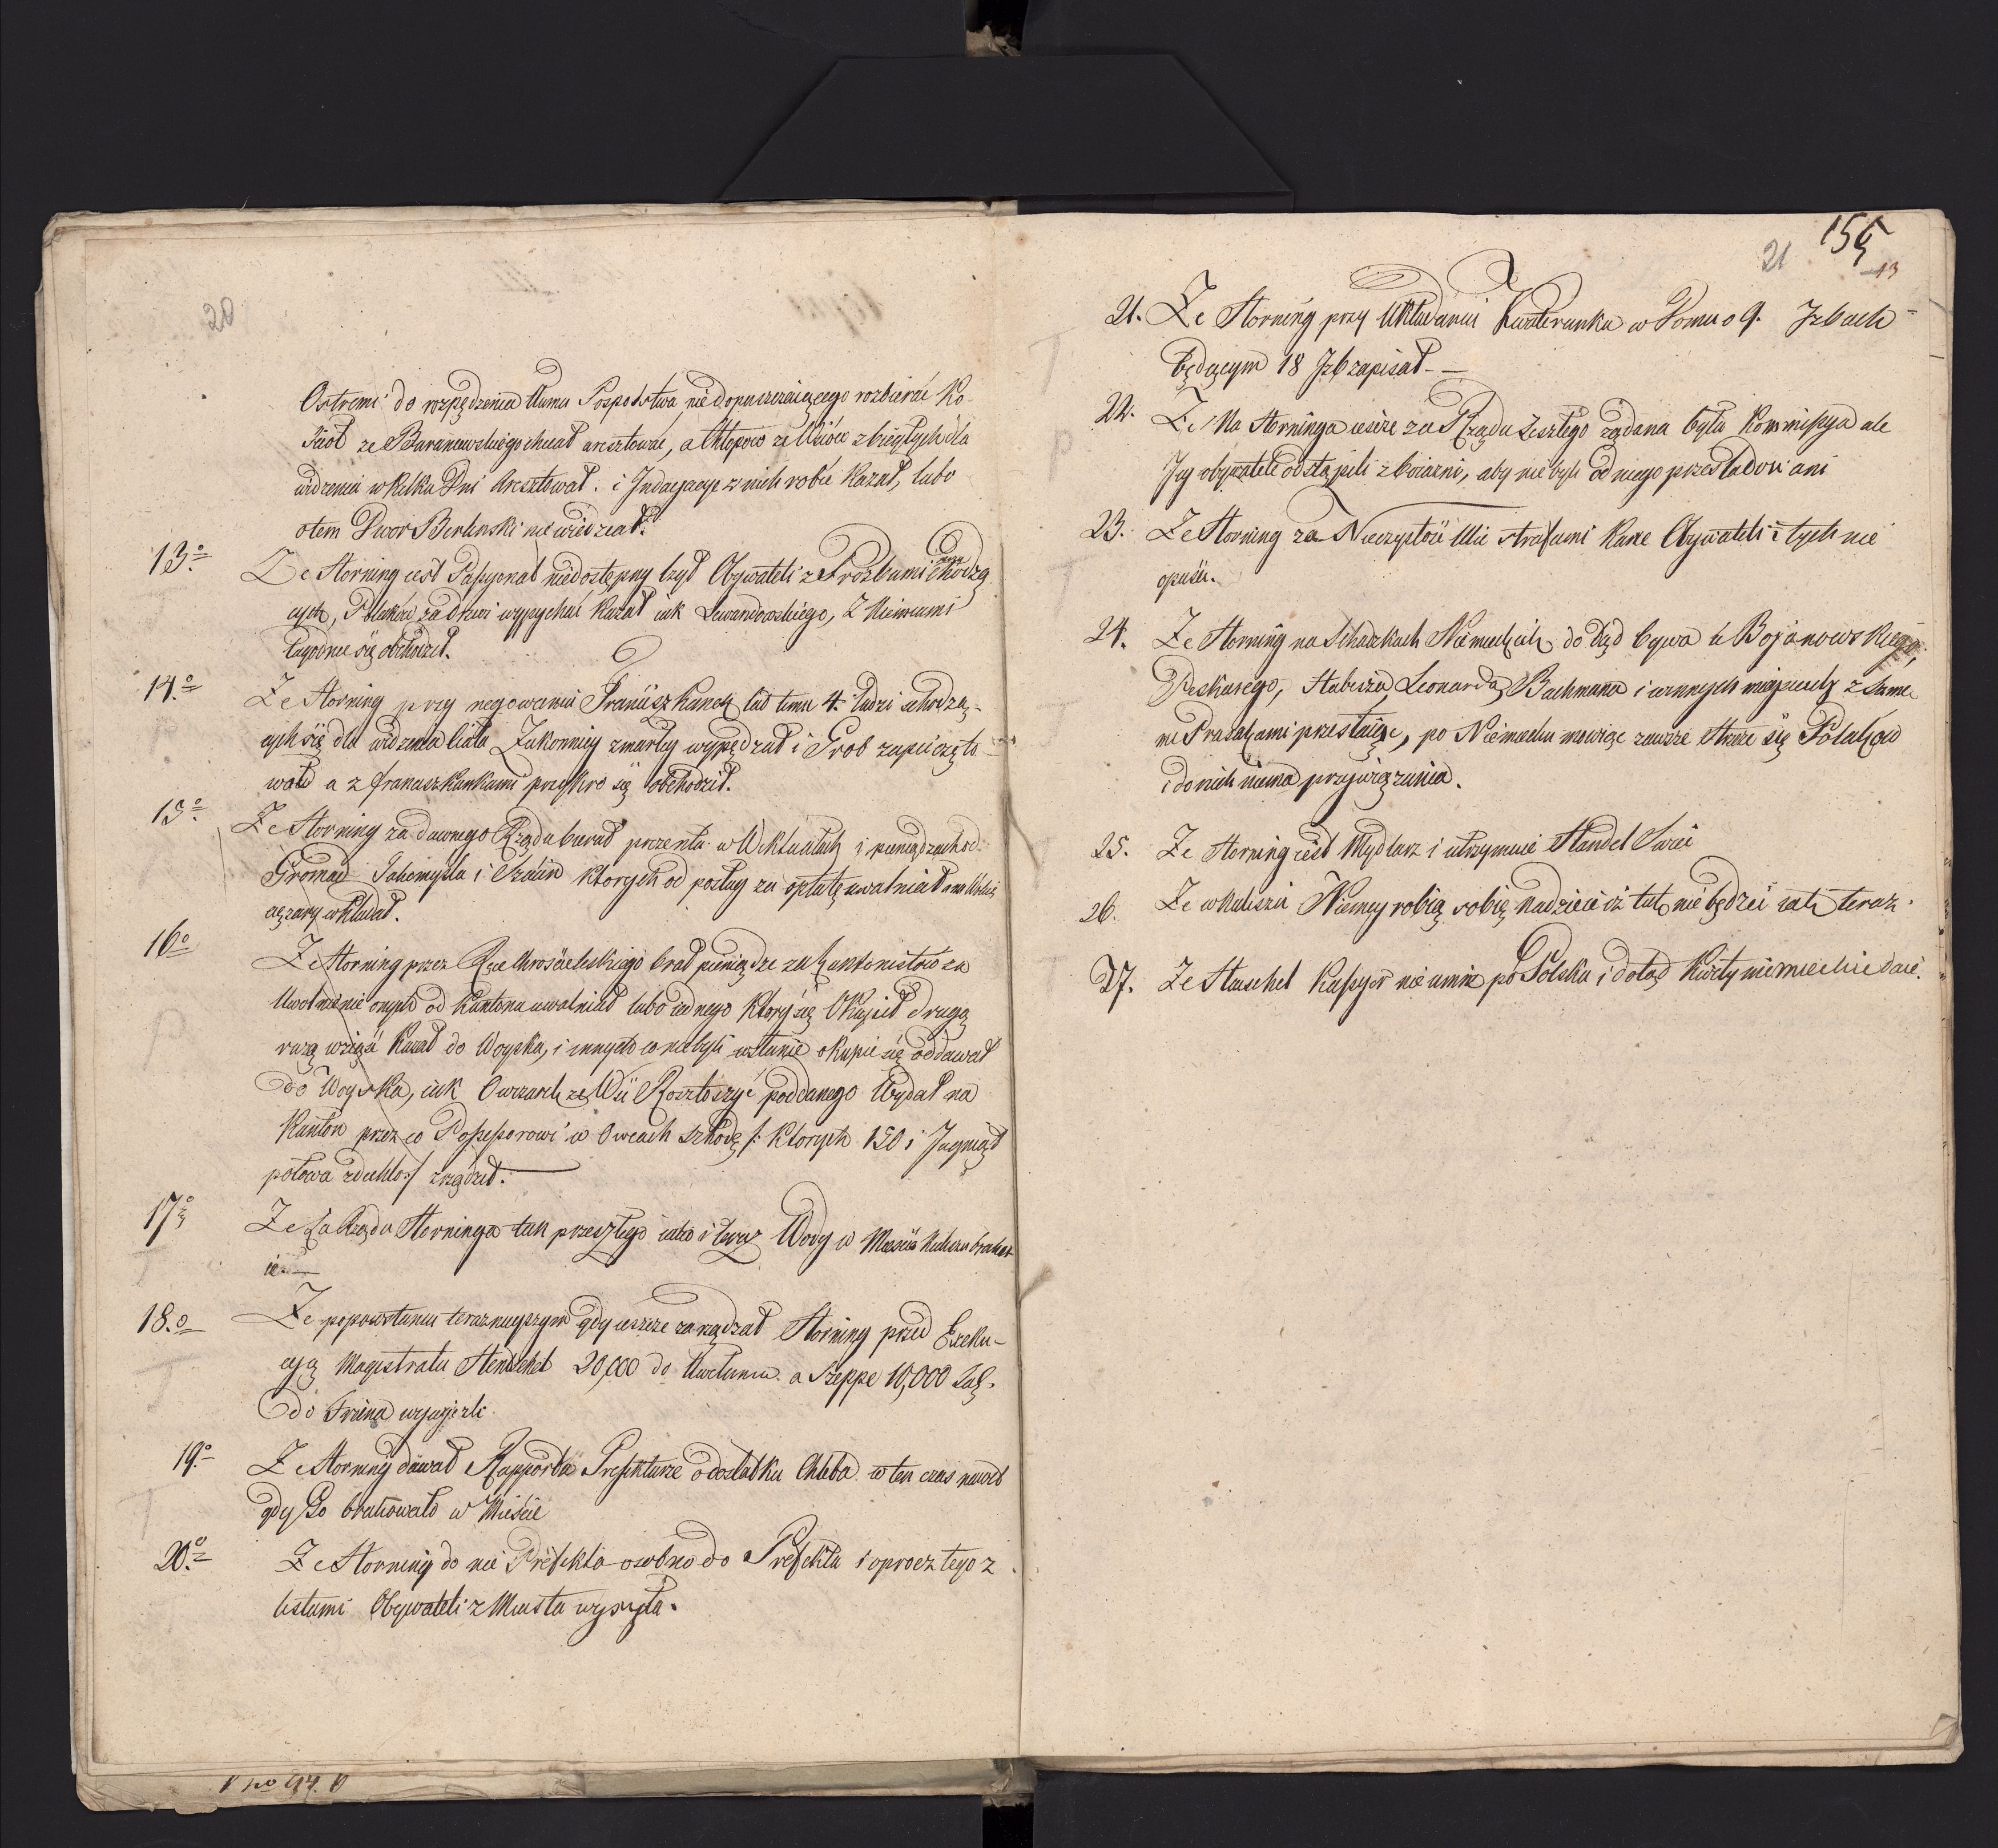 20
Ostremi do rozpędzenia tłumu Pospolstwa niedopuszczaiącego rozbierać Ko-
ścioł ze Baranowskiego chciał aresztować, a Chłopow ze Wsiow zbiegłych dla
widzenia w kilka Dni Aresztował. i Indagacye z nich robić kazał, lubo
otem Dwor Berlinski nie wiedział.
13.o Ze Horning iest Passyonat niedostępny łzył Obywateli z Prozbami chodzą
cych, Polaków za drzwi wypychać kazał iak Lewandowskiego, z Niemcami
łagodnie się obchodził.
14.o Ze Horning przy negowaniu Franciszkanek lad temu 4. ludzi schodzą-
cych się dla widzenia ciała Zakonnicy zmarłey wypędzał i Grob zapieczęto-
wał a z franciszkankami przykro się obchodził.
15.o Ze Horning za dawnego Rządu bierał prezenta w Wiktuałach i pieniądzach od
Gromad i ktorych od posług za opłatę uwalniał a na
ciężary wkładał.
16o Ze Horning przez Ręce Chroscieleskiego brał pieniądze za kantonistów za
Uwolnienie onych od kantonu uwalniał lubo iednego ktory się Okupił drugą
razą wziąść kazał do Woyska, i innych co niebyli wstanie okupić się oddawał
do Woyska, iak Owczarek ze Wsi Rosztoszyć poddanego Wydał na
Kanton przez co Possessorowi w Owcach szkodę /: ktorych 150 i Jagniąt
połowa zdechło :/ zrządził.
17o Ze Za Rządu Horninga tak przeszłego iako i teraz Wody w Mieście Kaliszu brakow
ie.
18.o Ze popowstaniu teraznieyszym gdy ieszcze zarządzał Horning przed Exeku-
cyą Magistratu Henschel 20,000 do a Szeppe 10,000 Tal.
do wywiezli
19.o Ze Horning dawał Rapporta Prefekturze odostatku Chleba w ten czas nawet
gdy go brakowało w Mieście
20.o Ze Horning do nie Prefekta osobno do Prefekta i oprocz tego z
listami Obywateli z Miasta wysyła.
21 155
13
21. Ze Horning przy Układaniu Kwaterunku w Domu o 9. Izbach
będącym 18 Izb zapisał.
22. Ze Na Horninga ieszcze za Rządu Zeszłego żądana była Kommissya ale
Jey obywatele odstąpili z boiazni, aby nie byli od niego prześladowani
23. Ze Horning za Nieczystość Ulic strafami karze Obywateli i tych nie
opuści.
24. Ze Horning na Schadzkach Niemieckich do tąd bywa u Bojanowskiego,
Peskarego, Stabusza, Leonarda, Bachmana i winnych mieyscach z same
mi Prusakami przestaiąc, po Niemiecku mowiąc zawsze strzeże się Polakow
i do nich niema przywiązania.
25. Ze Horning iest Mydlarz i utrzymuie Handel Swiec
26. Ze w Kaliszu Niemcy robią sobie nadzieie iż tak nie będzie iak teraz.
27. Ze Haeschel Kassyer nie umie po Polsku i dotąd Kwity niemieckie daie.